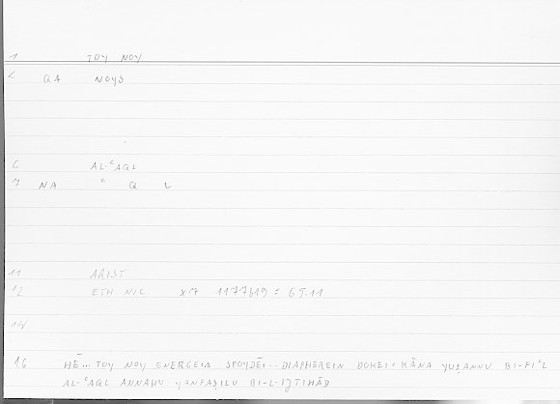 1 TOY NOY
2 QA NOYS
6 AL-ʿAQL
7 NA ʿ Q L
11 ARIST
12 ETH NIC X7 1177b19 = 69.11
14
16 HĒ... TOY NOY ENERGEIA SPOYDĒI... DIAPHEREIN DOKEI = KĀNA YUẒANNU BI-FIʿL
AL-ʿAQL ANNAHU YANFAṢILU BI-L-IǦTIHĀD